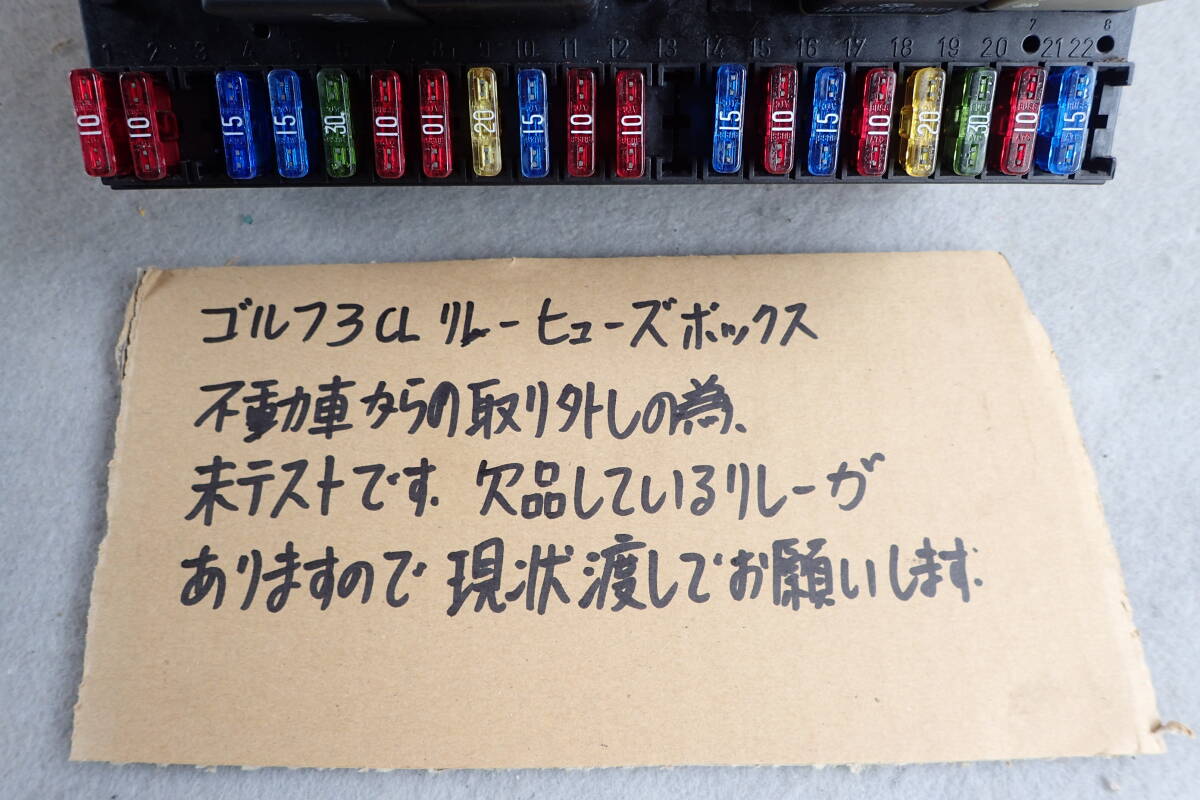 7 8
1 2 3 4 5 6 7 8 9 10 11 12 13 14 15 16 17 18 19 20 21 22
10 10 15 15 30 10 10 20 15 10 10 15 10 15 10 20 30 10 15
ゴルフ3CL リレーヒューズボックス
不動車からの取り外しの為、
未テストです。欠品しているリレーが
ありますので現状渡しでお願いします。